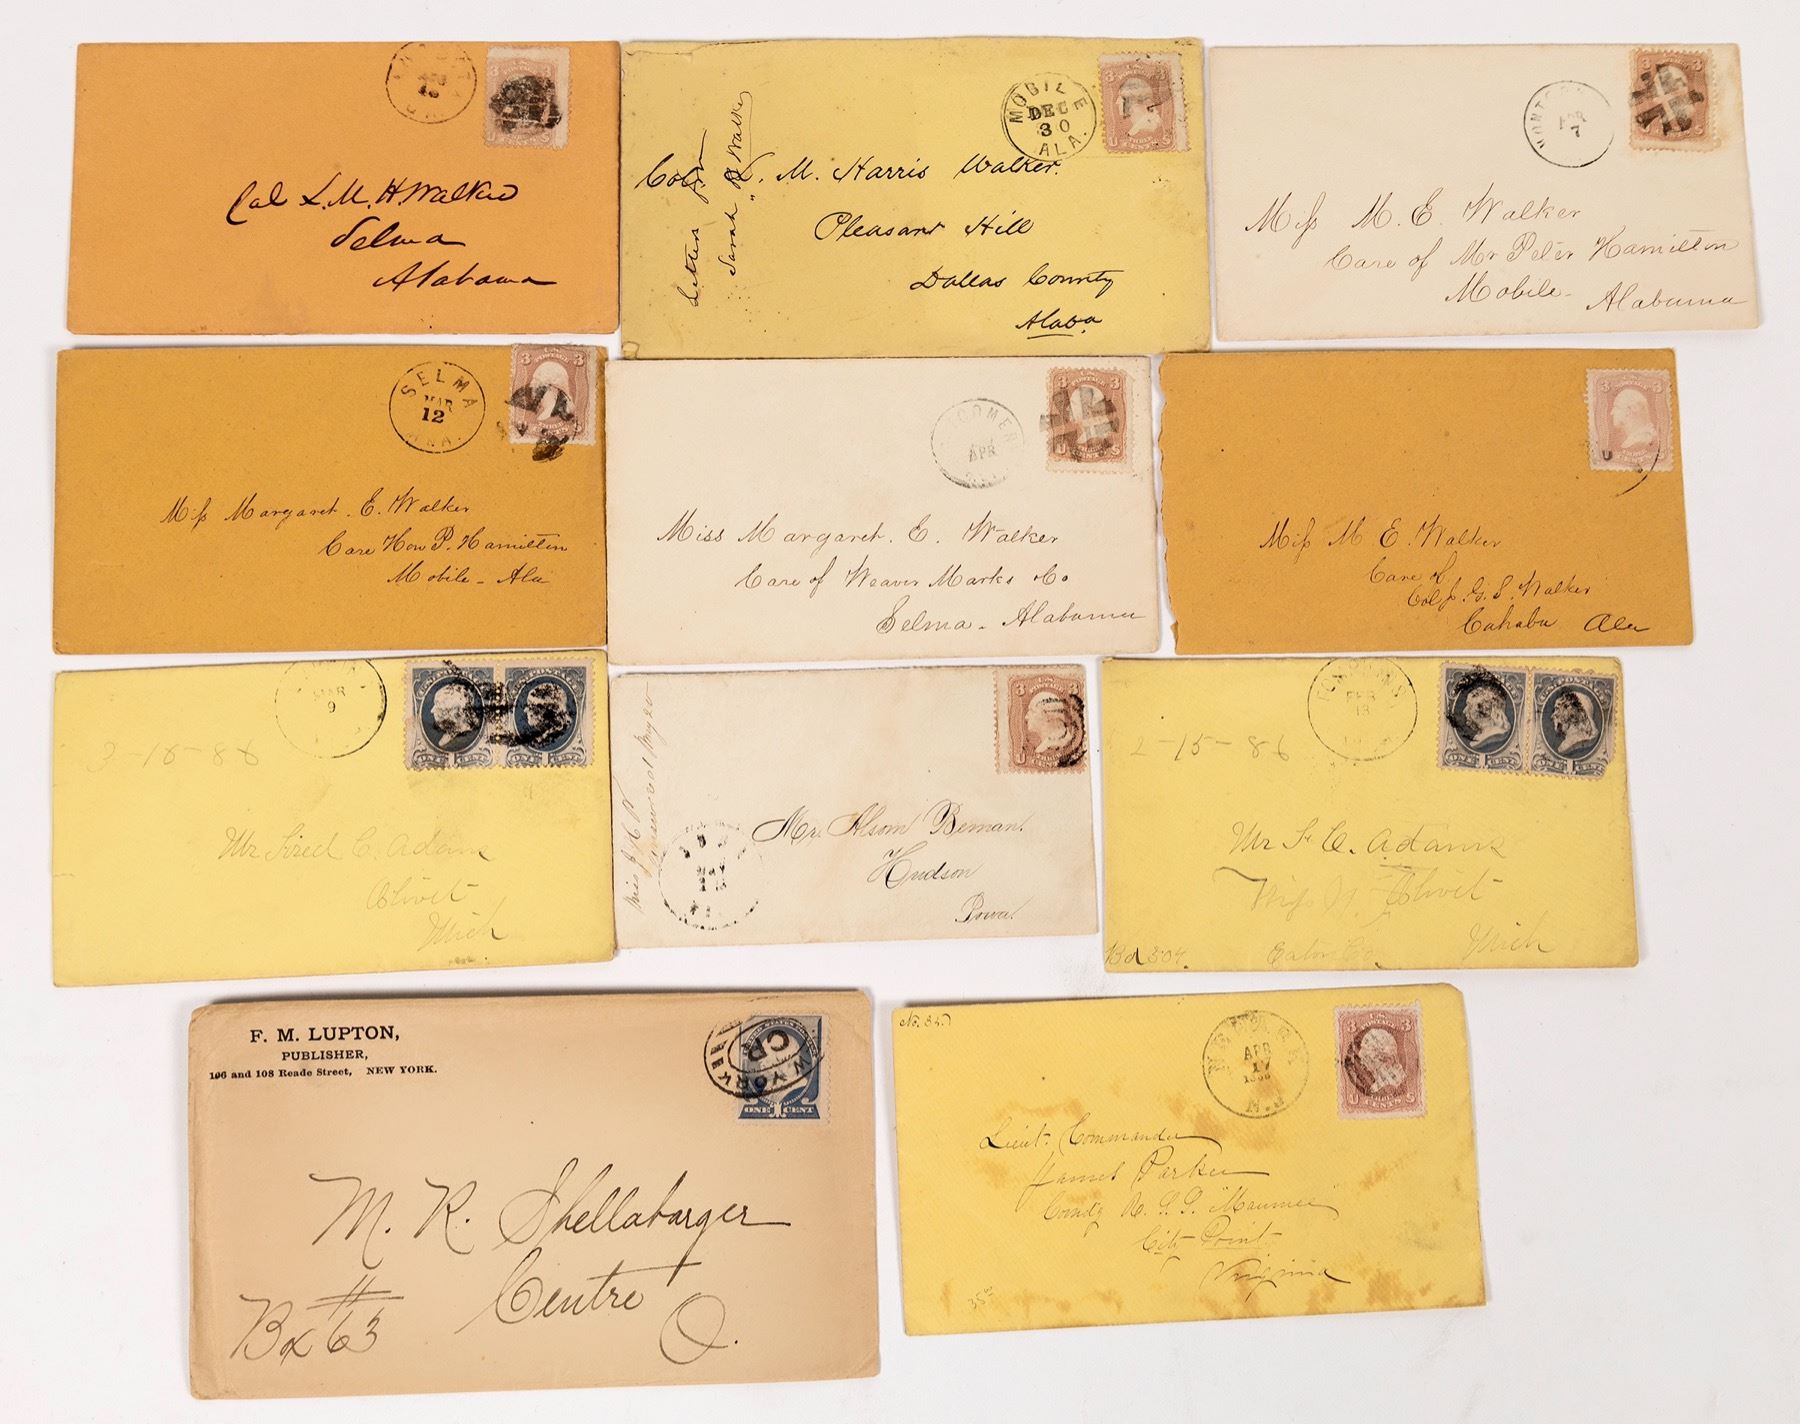 Col L. M. H. Walker
Selma
Alabama
MOBILE
DEC
30
ALA.
3 3
Letters from
Sarah Walker
Col L. M. Harris Walker.
Pleasant Hill
Dallas County
Alaba
APR
7
Miss M. E. Walker
Care of Mr Peter Hamilton
Mobile - Alabama
SELMA
MAR
12
ALA.
3 3
Miss Margaret. E. Walker
Care Hon P. Hamilton
Mobile - Ala
APR
3 3
Miss Margaret. E. Walker
Care of Weaver Marks & Co
Selma - Alabama
3 3
Miss M E. Walker
Care of
Col J. G. S. Walker
Cahaba Ala
MAR
9
ONE CENT ONE CENT
3-15-86
Mr Fred C. Adams
Olivet
Mich
3 3
Miss J H P
Answered
Mr. Alsom Beman.
Hudson
Iowa.
FEB
13
ONE CENT ONE CENT
2-15-86
Mr F. C. Adams
Olivet
Mich
Bd 304.
Eaton Co.
F. M. LUPTON,
PUBLISHER,
106 and 108 Reade Street, NEW YORK.
NEW YORK
CP
ONE 1 CENT
M. R. Shellabarger
Centre
Box # 63
O.
No. 35.
APR
17
N.J
3 3
Lieut. Commander
James Parker
Comdg U. S. S. "Maumee"
City Point
Virginia